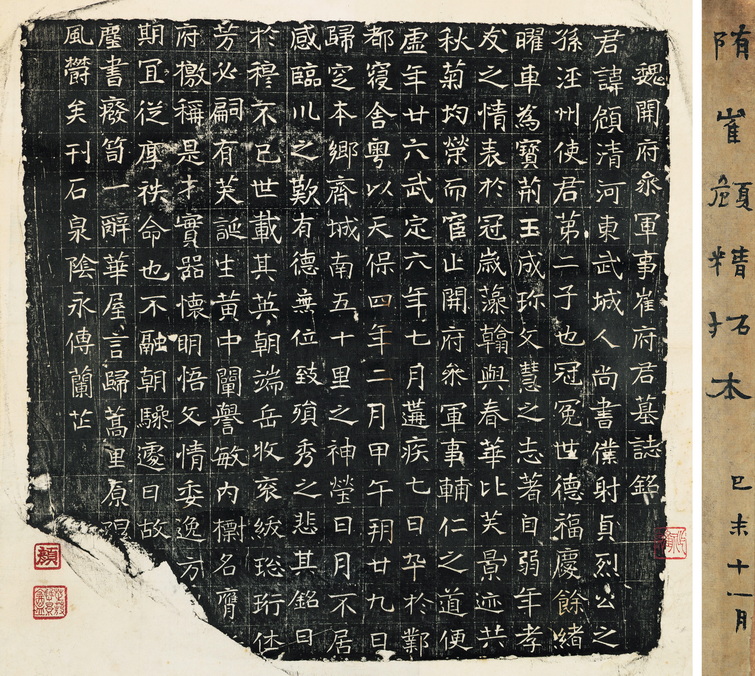 隋崔頠精拓本
己未十一月
魏開府叅軍事崔府君墓誌銘
君諱頠清河東武城人尚書僕射貞烈公之
孫涇州使君第二子也冠冕世德福慶餘緒
曜車為寶荊玉成珎文慧之志著自弱年孝
友之情表於冠歲藻翰與春華比芙景迹共
秋菊均榮而宦止開府叅軍事輔仁之道便
虛年廿六武定六年七月遘疾七日卒於鄴
都寢舍粵以天保四年二月甲午朔廿九日
歸窆本鄉齊城南五十里之神塋日月不居
感臨川之歎有德無位致殲秀之悲其銘曰
於穆不已世載其英朝端岳牧袞紱璁珩
芳必嗣有芙誕生黃中闡譽敏內摽名膺
府檄稱是才實器懷明悟文情委逸方
期冝從摩秩命也不融朝驂遽日故
塵書廢笥一辭華屋言歸蒿里原隰
風欝矣刊石泉陰永傳蘭芷